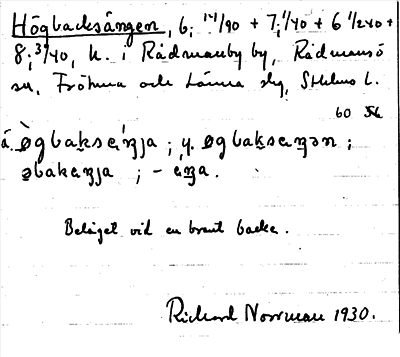 Högbacksängen, 6; 14/90 + 7; 1/40 + 6 1/240 +
8; 3/40, h. i Rådmanby by, Rådmansö
sn, Frötuna och Länna slg, Sthlms l.
60 56
á. øgbaksæŋja ; y. øgbaksæŋən ;
øbakeŋja ; – eŋa.
Beläget vid en brant backe.
Richard Norrman 1930.